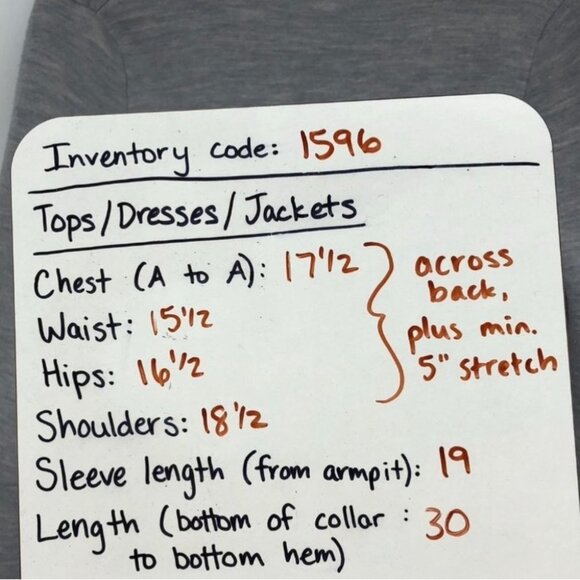 Inventory code: 1596
Tops/Dresses/Jackets
Chest (A to A): 17 1/2
Waist: 15 1/2
Hips: 16 1/2
across
back,
plus min.
5" stretch
Shoulders: 18 1/2
Sleeve length (from armpit): 19
Length (bottom of collar : 30
to bottom hem)